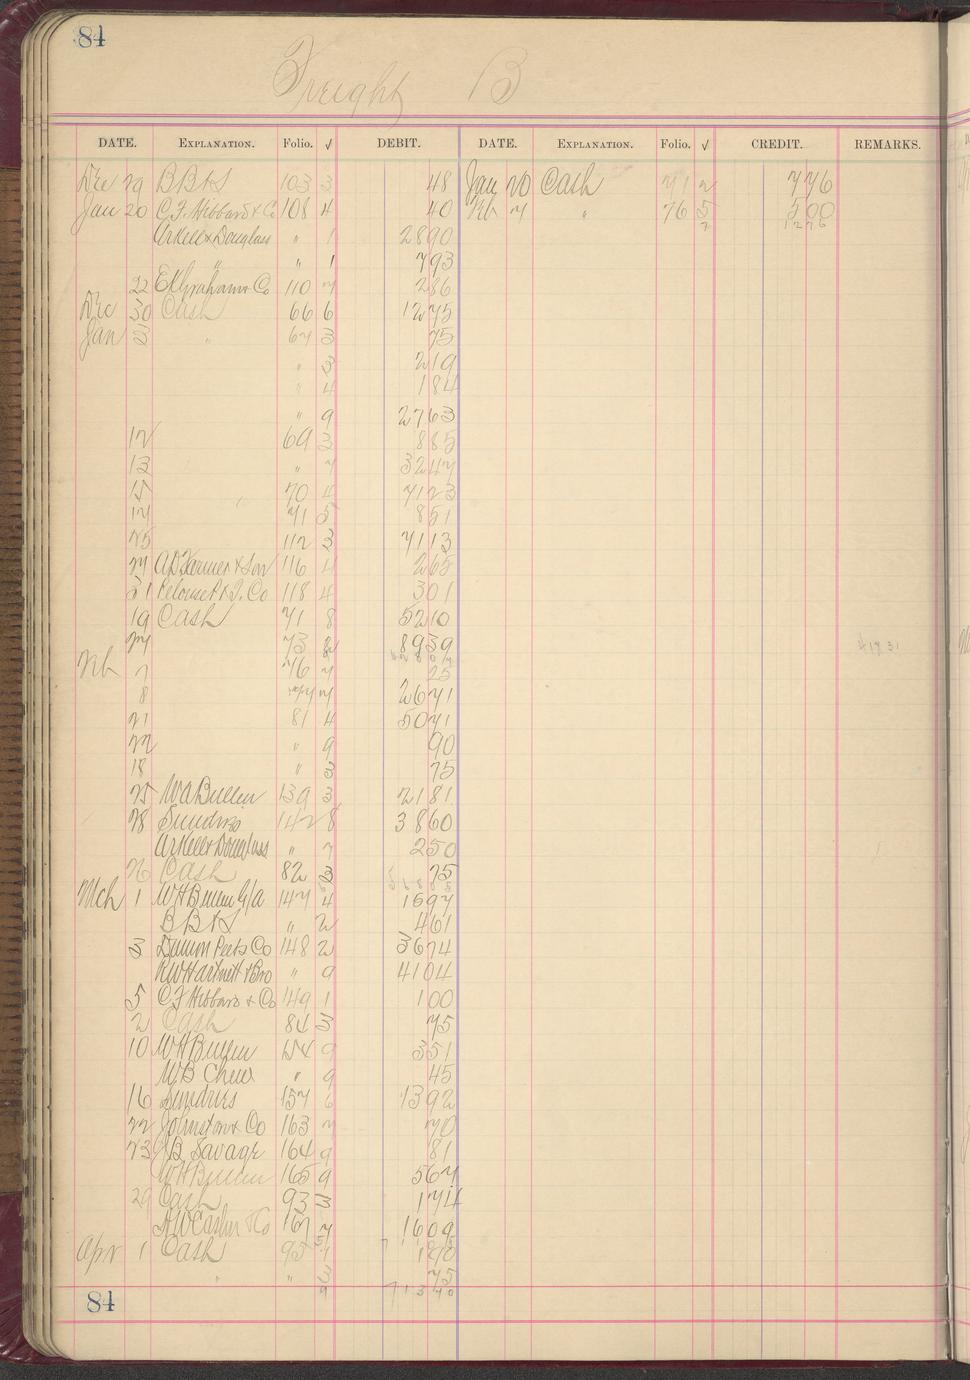 84
Freight B
DATE. EXPLANATION. Folio. √ DEBIT. DATE. EXPLANATION. Folio. √ CREDIT. REMARKS.
Dec 29 BB&S 103 3 48 Jan 20 Cash 71 2 776
Jan 20 C.F. Hibbard & Co 108 4 40 Feb 7 " 76 5 500
Arkell & Douglass " 1 2890 7 1276
" " 1 793
22 E.K. Graham & Co 110 7 286
Dec 30 Cash 66 6 1275
Jan 3 " 67 3 75
" 3 219
" 4 184
" 9 2763
12 69 3 885
13 " 7 3247
15 " 70 4 7123
17 71 5 851
25 112 3 7113
27 A.D. Farmer & Son 116 4 265
31 Pelouset & J. Co 118 4 301
19 Cash 71 8 5210
27 73 8939 41731
Feb 7 76 7 25
8 77 7 2671
21 81 4 5071
22 " 9 90
18 " 3 75
25 W A Bullen 139 3 2181
28 Sundries 142 8 3860
Arkell & Douglass " 7 250
26 Cash 82 3 75
Mch 1 W H Bullen G/a 147 4 1697
BB&S " 2 461
3 Damon Peets Co 148 2 3674
R W Hartnett & Bro " 9 4104
5 C.F. Hibbard & Co 149 1 100
2 Cash 84 3 75
10 W H Bullen 154 9 351
W B Chew " 9 45
16 Sundries 157 6 1392
22 Johnston & Co 163 7 70
23 J B Savage 164 9 81
W H Bullen 165 9 567
29 Cash 93 3 174
167 7 1609
Apr 1 Cash 95 1 190
" " 3 75
9 71370
84